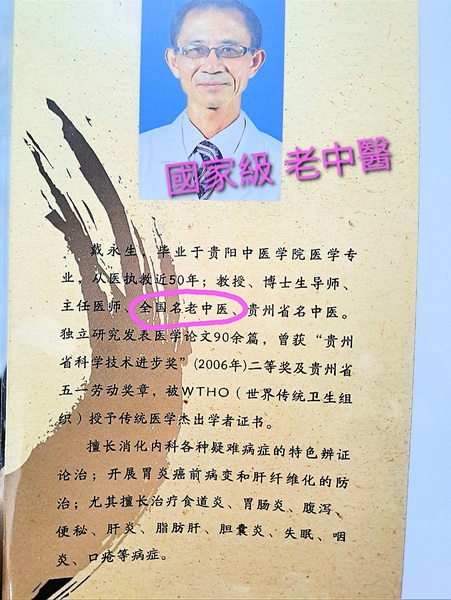 國家級 老中醫
戴永生，毕业于贵阳中医学院医学专
业，从医执教近50年；教授、博士生导师、
主任医师、全国名老中医、贵州省名中医。
独立研究发表医学论文90余篇，曾获“贵州
省科学技术进步奖”(2006年)二等奖及贵州省
五一劳动奖章，被WTHO（世界传统卫生组
织）授予传统医学杰出学者证书。
擅长消化内科各种疑难病症的特色辨证
论治；开展胃炎癌前病变和肝纤维化的防
治；尤其擅长治疗食道炎、胃肠炎、腹泻、
便秘、肝炎、脂肪肝、胆囊炎、失眠、咽
炎、口疮等病症。